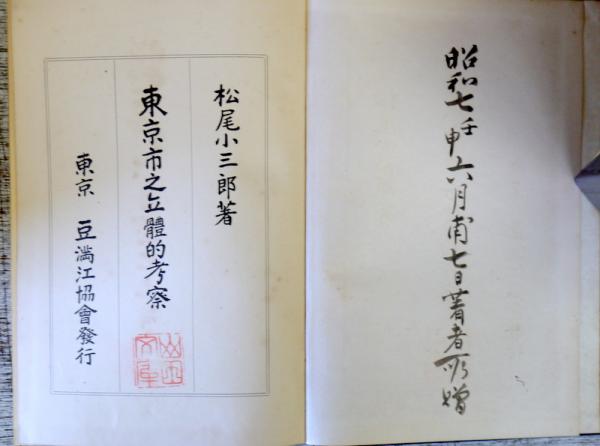 昭和七壬申六月甫七日著者所贈
松尾小三郎著
東京市之立體的考察
東京 豆満江協會發行